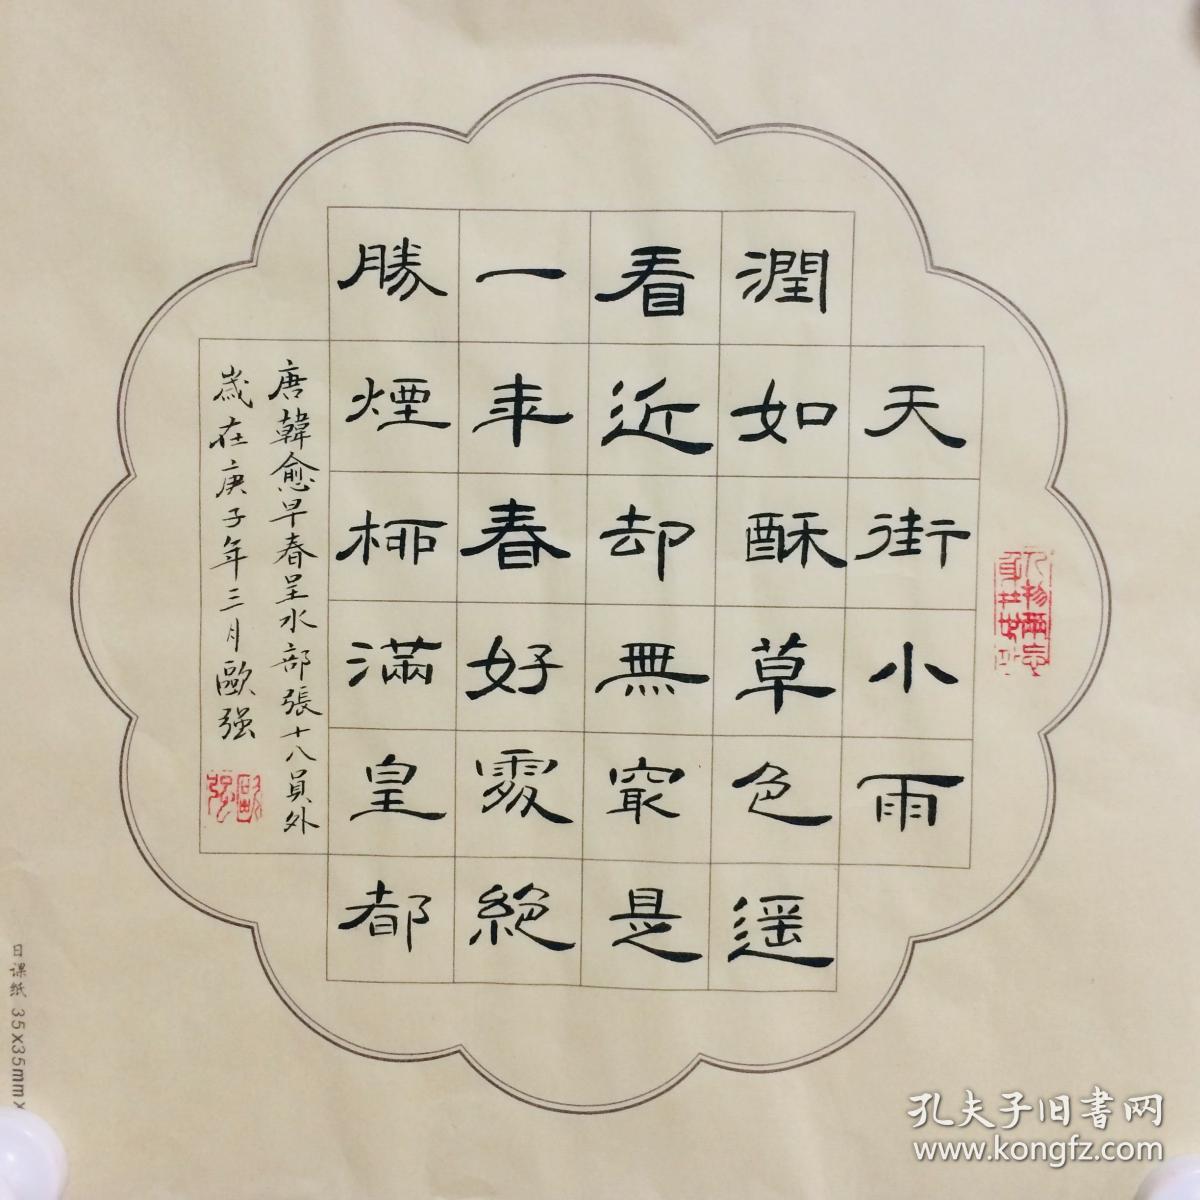 天街小雨
潤如酥草色遥
看近却無最是
一年春好處絶
勝煙柳滿皇都
唐韓愈早春呈水部張十八員外
歲在庚子年三月歐强
歐强
日课纸 35x35mm x
孔夫子旧書网
www.kongfz.com